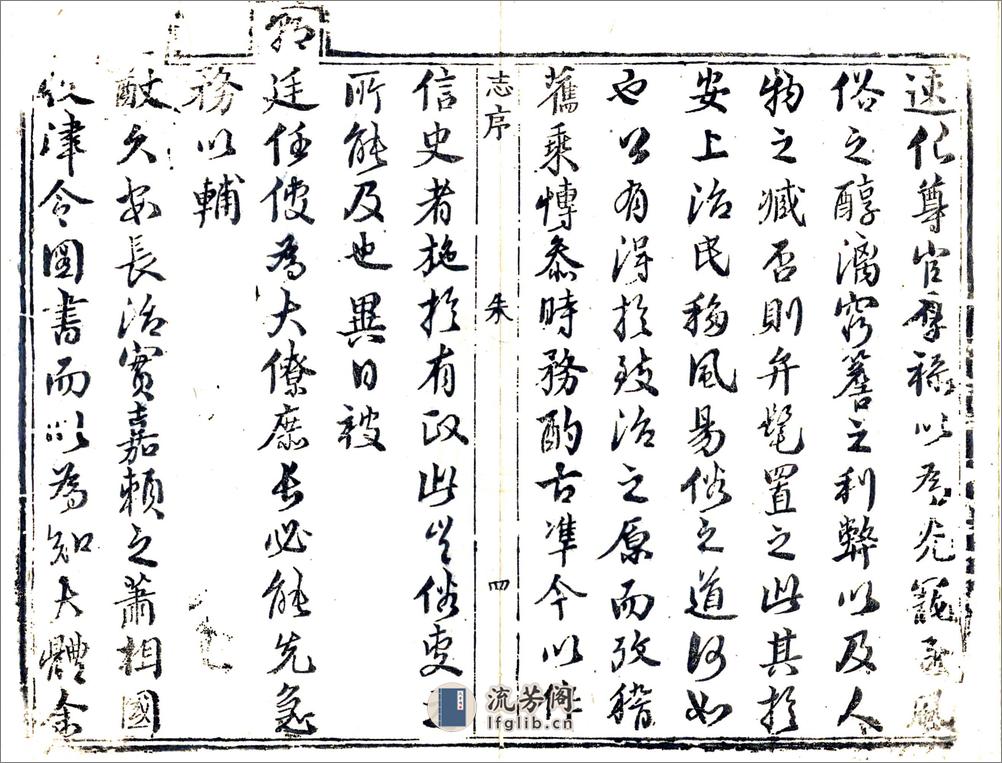 速化尊官厚祿以為光寵至風
俗之醇漓窮簷之利弊以及人
物之臧否則弁髦置之此其於
安上治民移風易俗之道何如
也公有得於致治之原而攷稽
舊乘博參時務酌古準今以
志序 朱 四
信史者施於有政此豈俗吏之
所能及也異日被
朝廷任使為大僚庶長必能先急
務以輔
猷久安長治實嘉賴之蕭相國
收律令圖書而以為知大體余
流芳阁
lfglib.cn